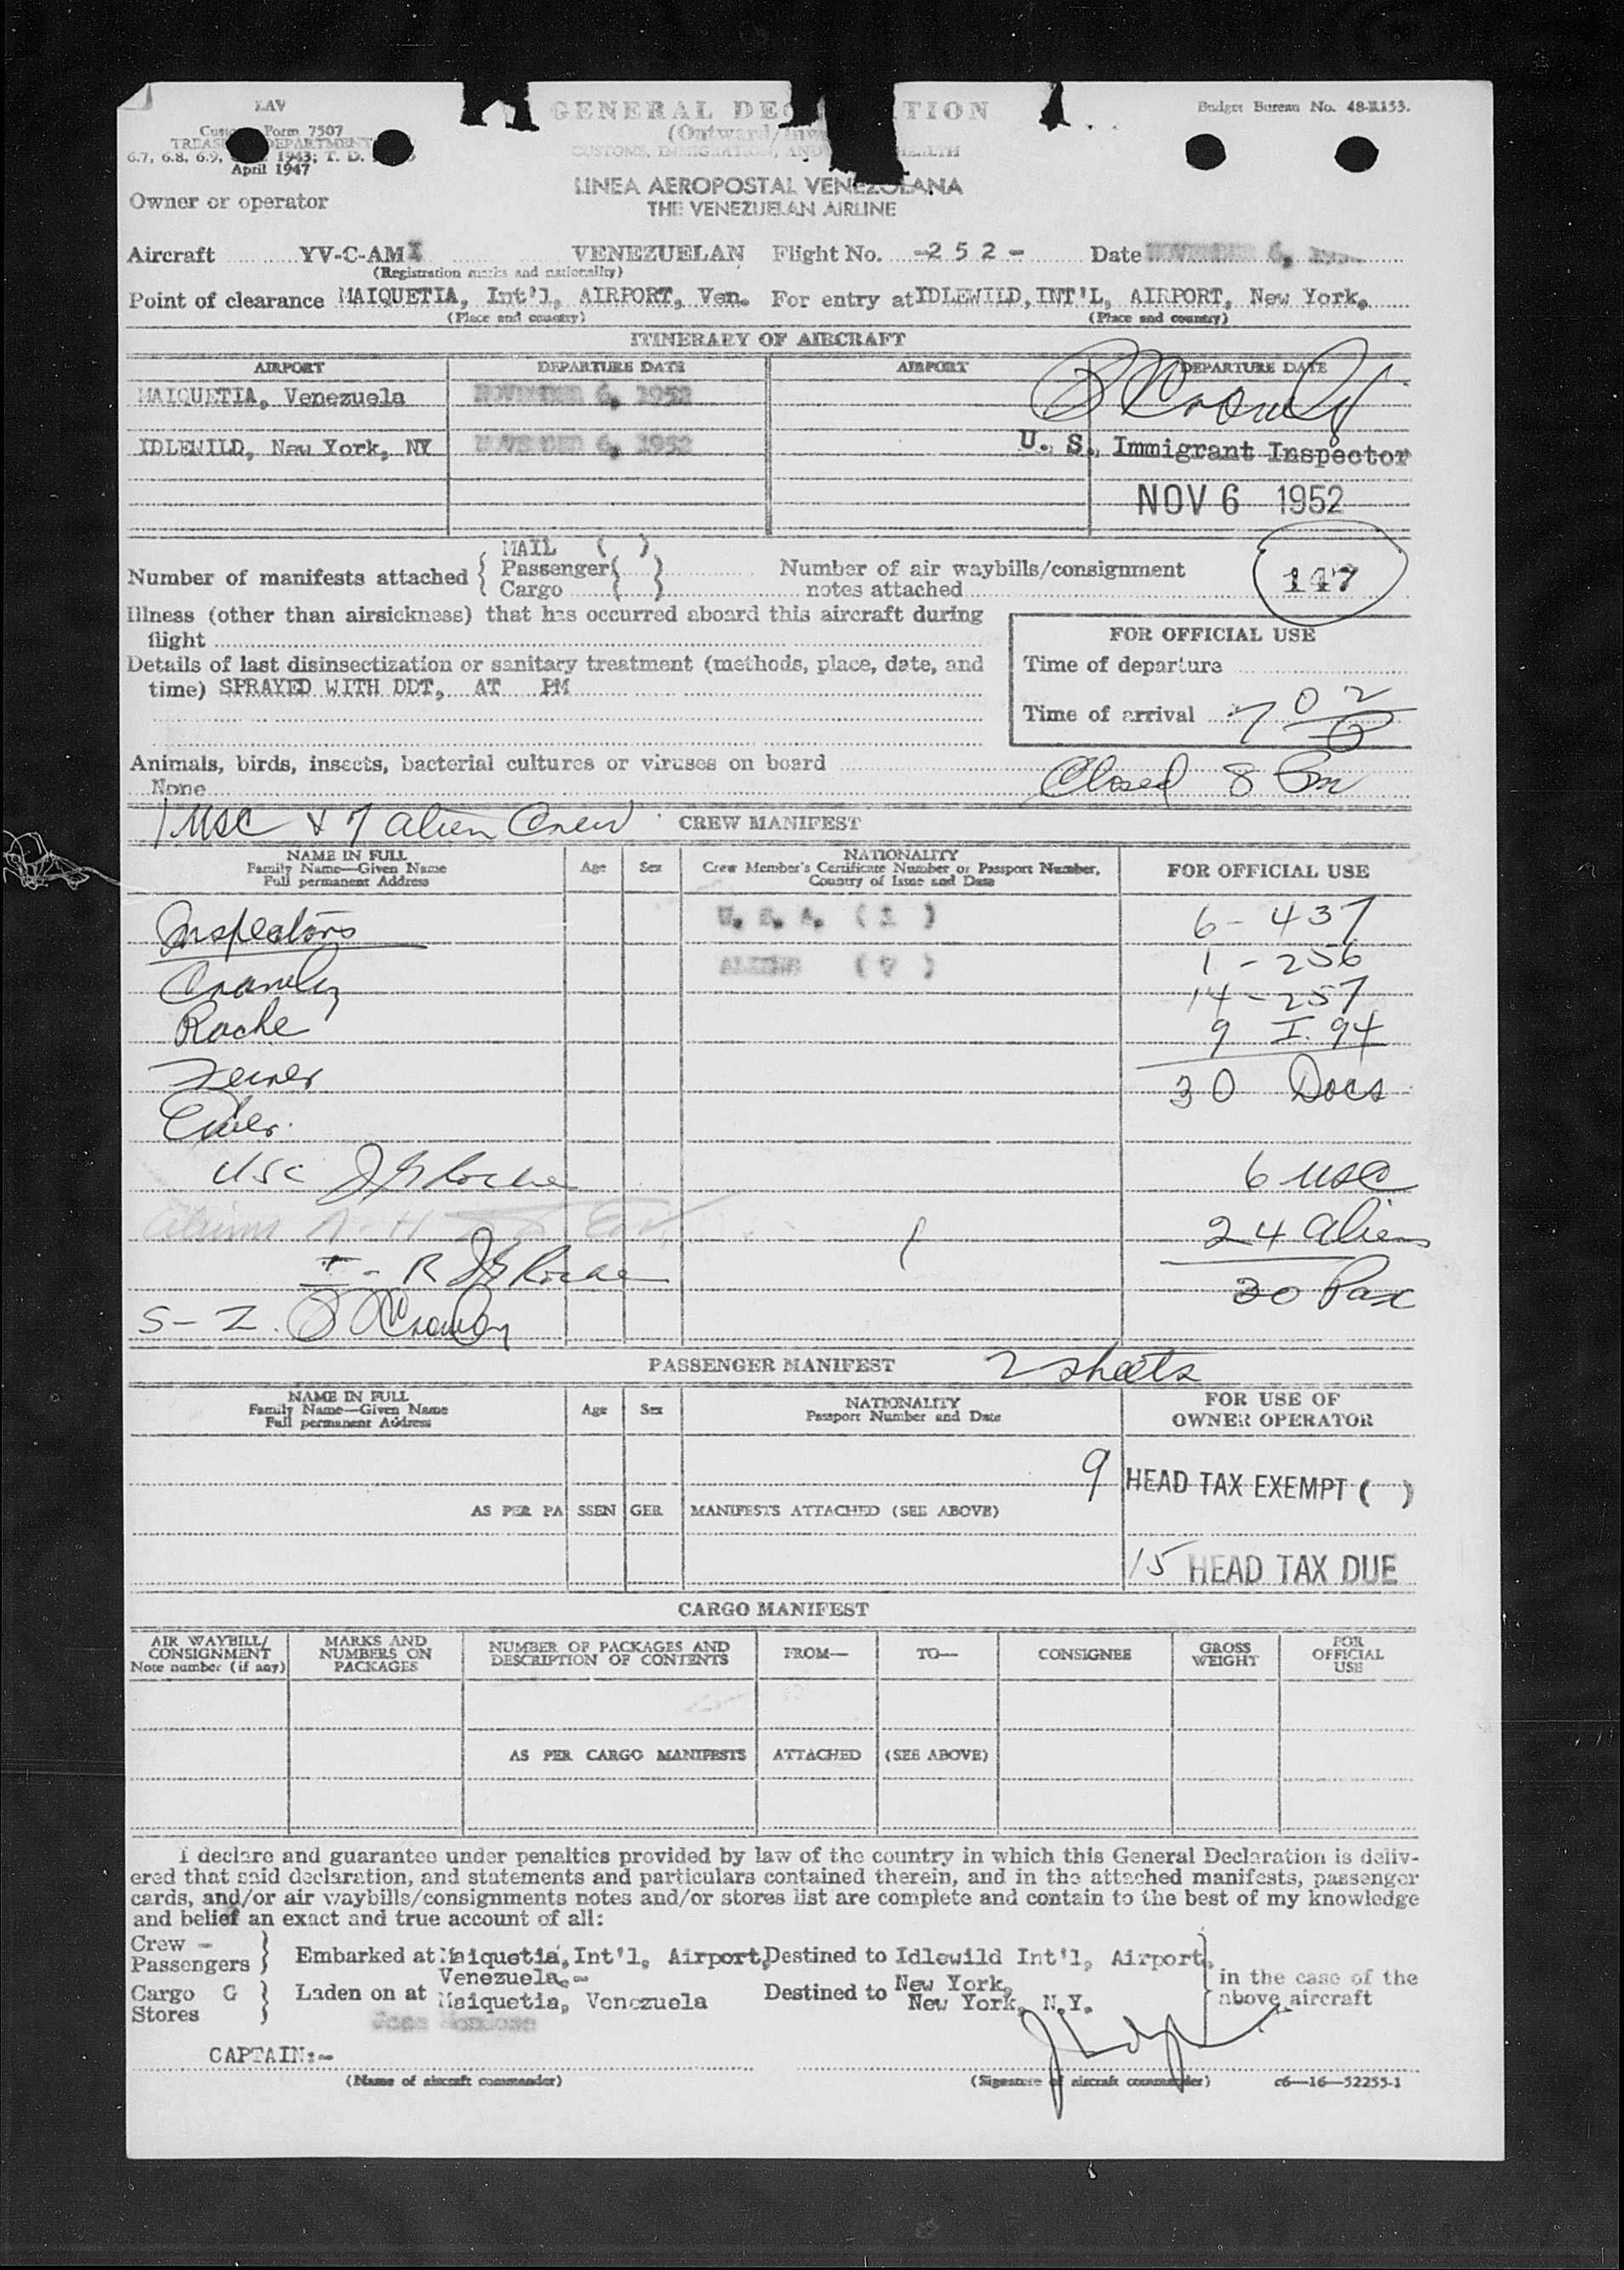 LAV
Customs Form 7507
TREASURY DEPARTMENT
6.7, 6.8, 6.9, 1943; T. D.
April 1947
GENERAL DEC TION
(Outward/Inw
CUSTOMS, IMMIGRATION, AND HEALTH
Budget Bureau No. 48-R153.
LINEA AEROPOSTAL VENEZOLANA
THE VENEZUELAN AIRLINE
Owner or operator
Aircraft YV-C-AM VENEZUELAN Flight No. -2 5 2 - Date NOVEMBER 6,
(Registration marks and nationality)
Point of clearance MAIQUETIA, Int'l, AIRPORT, Ven. For entry at IDLEWILD, INT'L, AIRPORT, New York,
(Place and country) (Place and country)
ITINERARY OF AIRCRAFT
AIRPORT DEPARTURE DATE AIRPORT DEPARTURE DATE
MAIQUETIA, Venezuela NOVEMBER 6, 1952
IDLEWILD, New York, NY NOVEMBER 6, 1952
U. S. Immigrant Inspector
NOV 6 1952
MAIL ( )
Number of manifests attached { Passenger ( )
Cargo ( )
Number of air waybills/consignment
notes attached
147
Illness (other than airsickness) that has occurred aboard this aircraft during
flight
Details of last disinsectization or sanitary treatment (methods, place, date, and
time) SPRAYED WITH DDT, AT PM
FOR OFFICIAL USE
Time of departure
Time of arrival 7 02
Animals, birds, insects, bacterial cultures or viruses on board
None
Closed 8 Pm
1 USC & 7 alien Crew CREW MANIFEST
NAME IN FULL
Family Name—Given Name
Full permanent Address
Age Sex
NATIONALITY
Crew Member's Certificate Number or Passport Number,
Country of Issue and Date
FOR OFFICIAL USE
Inspectors U. S. A. ( 1 ) 6 - 437
Crowley ALIENS ( 7 ) 1 - 256
14 - 257
Roche 9 I. 94
30 Docs
USC J G Roche 6 USC
24 aliens
I - R J G Roche
30 Pax
S - I. Crowley
PASSENGER MANIFEST 2 sheets
NAME IN FULL
Family Name—Given Name
Full permanent Address
Age Sex
NATIONALITY
Passport Number and Date
FOR USE OF
OWNER OPERATOR
9 HEAD TAX EXEMPT ( )
AS PER PA SSEN GER MANIFESTS ATTACHED (SEE ABOVE)
15 HEAD TAX DUE
CARGO MANIFEST
AIR WAYBILL/
CONSIGNMENT
Note number (if any)
MARKS AND
NUMBERS ON
PACKAGES
NUMBER OF PACKAGES AND
DESCRIPTION OF CONTENTS
FROM—
TO—
CONSIGNEE
GROSS
WEIGHT
FOR
OFFICIAL
USE
AS PER CARGO MANIFESTS ATTACHED (SEE ABOVE)
I declare and guarantee under penalties provided by law of the country in which this General Declaration is deliv-
ered that said declaration, and statements and particulars contained therein, and in the attached manifests, passenger
cards, and/or air waybills/consignments notes and/or stores list are complete and contain to the best of my knowledge
and belief an exact and true account of all:
Crew -
Passengers } Embarked at Maiquetia, Int'l, Airport, Destined to Idlewild Int'l, Airport,
Venezuela.- New York,
Cargo G } Laden on at Maiquetia, Venezuela Destined to New York, N.Y.
Stores
in the case of the
above aircraft
CAPTAIN:-
(Name of aircraft commander) (Signature of aircraft commander) c6—16—52255-1